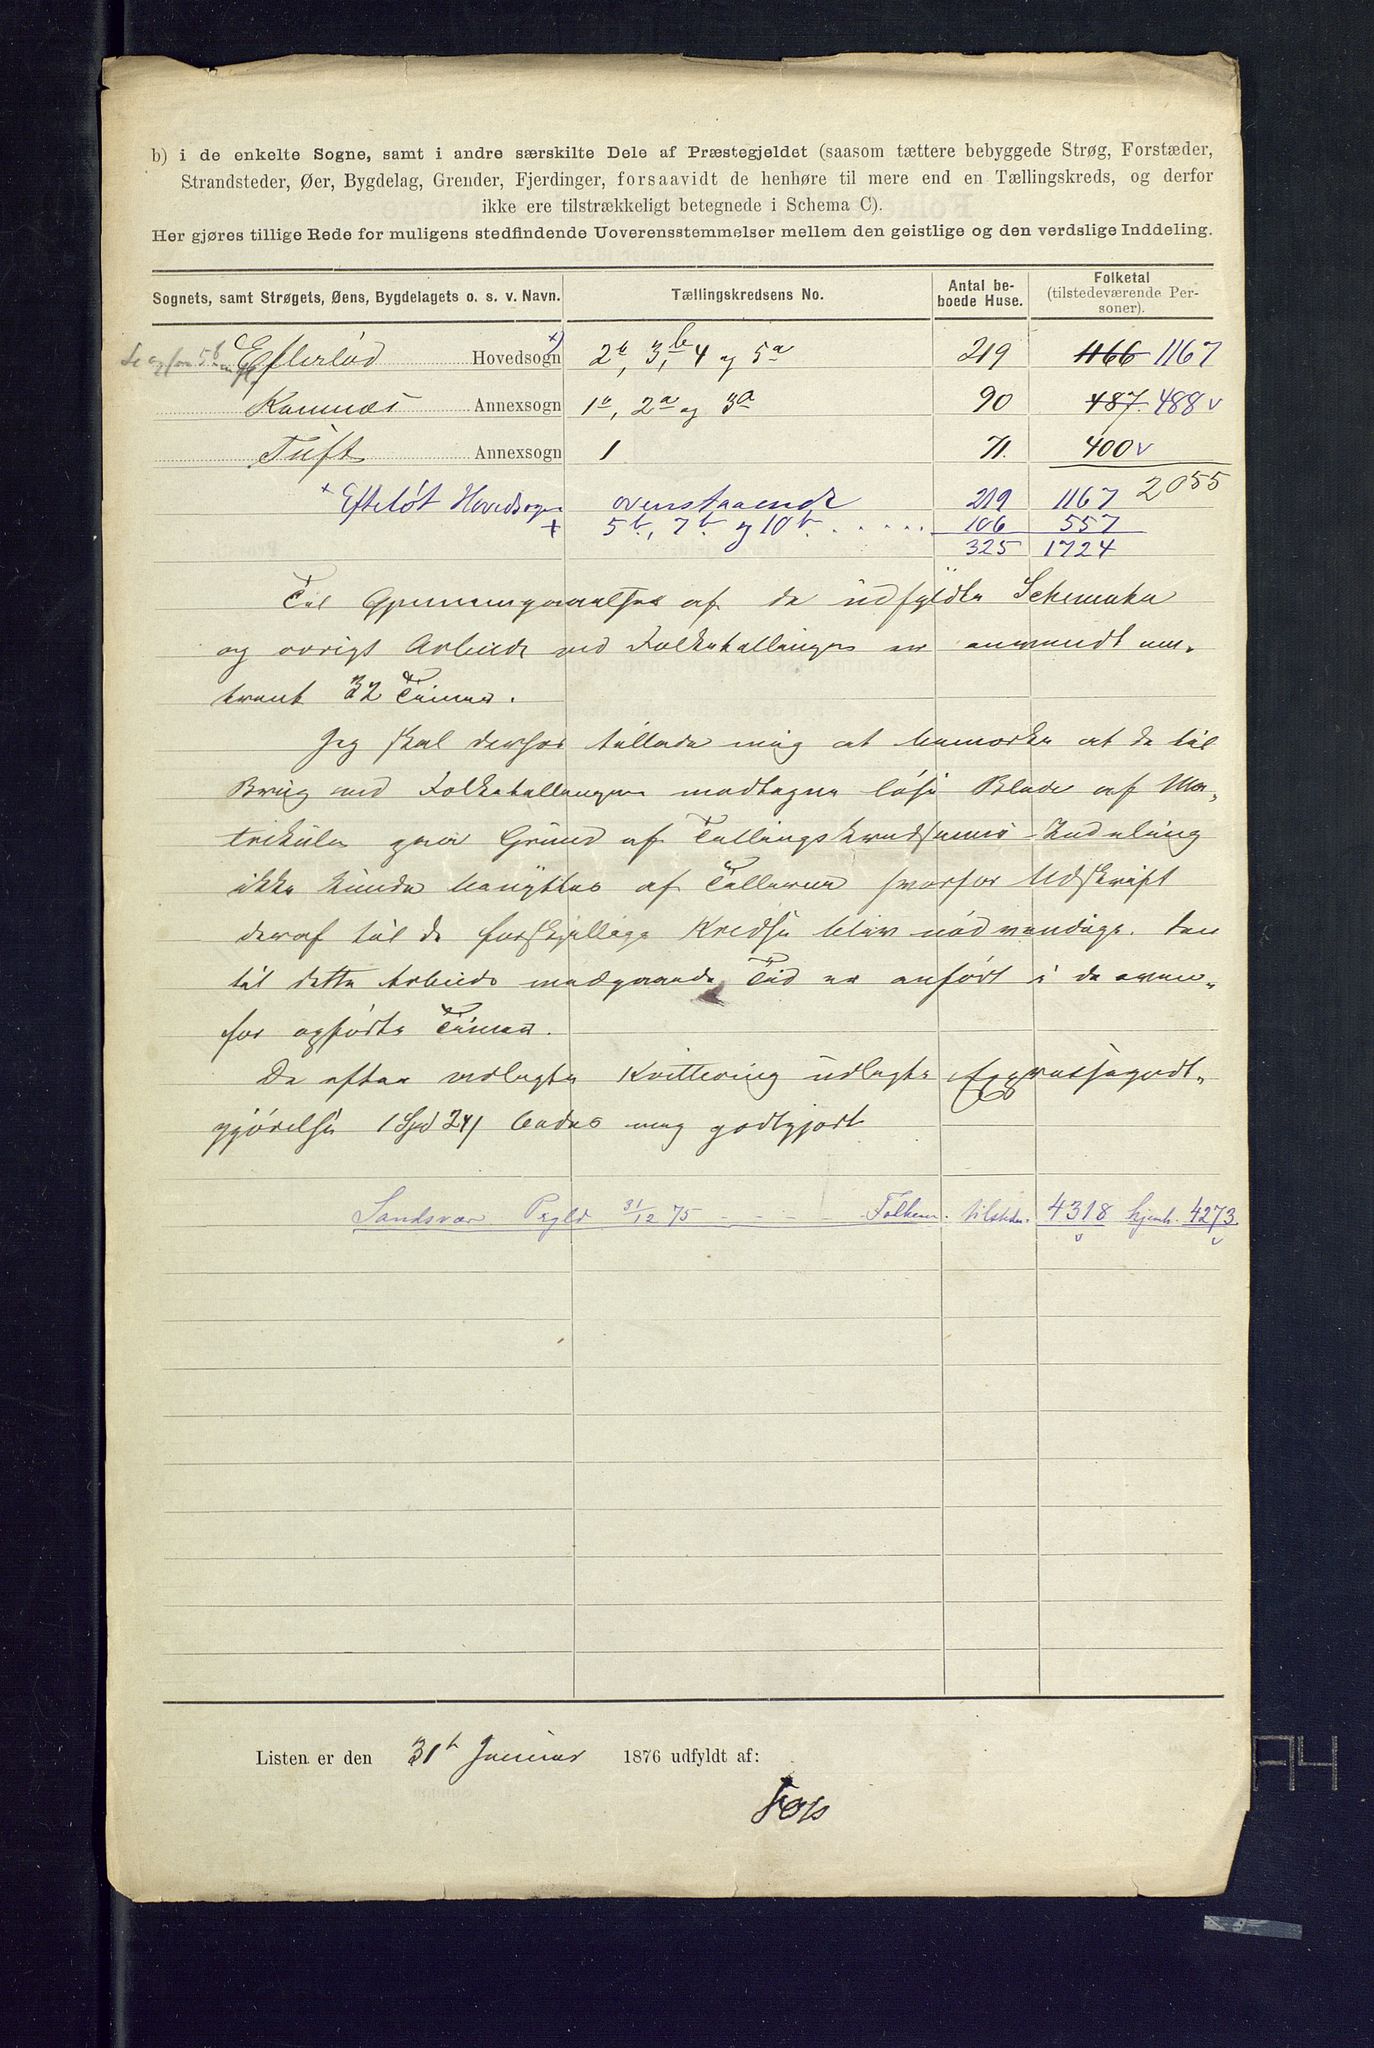 b) i de enkelte Sogne, samt i andre særskilte Dele af Præstegjeldet (saasom tættere bebyggede Strøg, Forstæder,
Strandsteder, Øer, Bygdelag, Grender, Fjerdinger, forsaavidt de henhøre til mere end en Tællingskreds, og derfor
ikke ere tilstrækkeligt betegnede i Schema C).
Her gjøres tillige Rede for muligens stedfindende Uoverensstemmelser mellem den geistlige og den verdslige Inddeling.
Sognets, samt Strøgets, Øens, Bygdelagets o. s. v. Navn. Tællingskredsens No. Antal beboede Huse. Folketal (tilstedeværende Personer).
Efterlød Hovedsogn x) 2b, 3b, 4 og 5a 219 1166 1167
Komnæs Annexsogn 1a, 2a og 3a 90 487. 488 v
Tuft Annexsogn 1 71. 400 v
2055
x Efteløt Hovedsogn ovenstaaende 219 1167
+ 5b, 7b og 10b 106 557
325 1724
Til Gjennemgaaelse af de udfyldte Schemata
og øvrigt Arbeide ved Folketællingen er anvendt om-
trent 32 Timer.
Jeg skal derhos tillade mig at bemærke at de til
Brug ved Folketællingen modtagne løse Blade af Ma-
trikulen paa Grund af Tællingskredsernes Inddeling
ikke kunde benyttes af Tællerne hvorfor Udskrift
deraf til de forskjellige Kredse blev nødvendige. Den
til dette Arbeide medgaaede Tid er anført i de oven-
for opførte Timer.
De efter vedlagte Kvittering udlagte Expressegodt-
gjørelse 1 Spd 24 bedes mig godtgjort
Sandsvær Pgjld 31/12 75 - - - - Folkem. tilstede. 4318 hjemh. 4273.
v v
Listen er den 31te Januar 1876 udfyldt af: